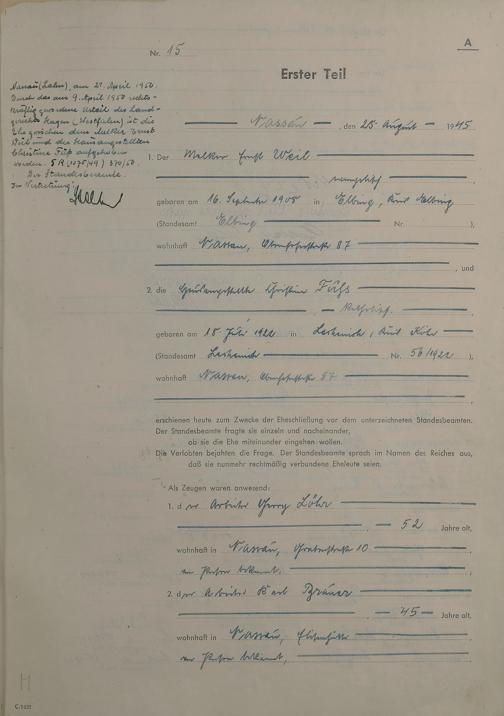 A
Nr. 15
Erster Teil
Nassau (Lahn), am 21. April 1950.
Durch das am 9. April 1950 rechts-
kräftig gewordene Urteil des Land-
gerichts Hagen (Westfalen) ist die
Ehe zwischen dem Melker Ernst
Weil und der Hausangestellten
Christine Füßs aufgehoben
worden. 5 R (1075/49) 370/50.
Der Standesbeamte.
In Vertretung:
Nassau, den 25. August 1945
1. Der Melker Ernst Weil
evangelisch
geboren am 16. September 1905 in Elbing, Kreis Elbing
(Standesamt Elbing Nr. ),
wohnhaft Nassau, 87
, und
2. die Christine Füßs
, katholisch,
geboren am 18. Juli 1922 in Lechenich, Kreis Köln
(Standesamt Lechenich Nr. 56/1922 ),
wohnhaft Nassau, 87
erschienen heute zum Zwecke der Eheschließung vor dem unterzeichneten Standesbeamten.
Der Standesbeamte fragte sie einzeln und nacheinander,
ob sie die Ehe miteinander eingehen wollen.
Die Verlobten bejahten die Frage. Der Standesbeamte sprach im Namen des Reiches aus,
daß sie nunmehr rechtmäßig verbundene Eheleute seien.
Als Zeugen waren anwesend:
1. der Arbeiter Georg Löhr
, 52 Jahre alt,
wohnhaft in Nassau, 10
von Person bekannt,
2. der Arbeiter Karl Bräuer
, 45 Jahre alt,
wohnhaft in Nassau, Elisenhütte
von Person bekannt,